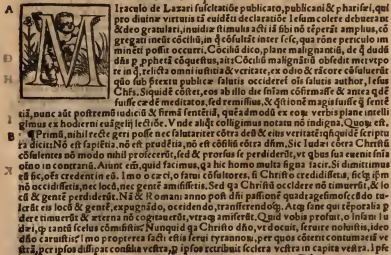 A
M Iraculo de Lazari suscitatiõe publicato, publicani & pharisęi, qui
pro diuinæ virtutis tã euidẽti declaratiõe Iesum colere debuerant
& deo gratulari, inuidiæ stimulis acti iã sibi nõ tẽperãt amplius, cõ
gregant inerũ cõciliũ, in q̃ cõsultẽt inter sese, qua rõne periculum im
minẽti possit occurri. Cõciliũ dico, plane malignantiũ, de q̃ dudũ
dñs p̱ ꝓphetã cõquestus, ait: Cõciliũ malignãtiũ obsedit me:
in q̃, relicta omni iustitia & veritate, ex odio & rãcore cõsultatur
quo sub p̱textu publicæ salutis occideret oĩs salutis author, Iesus
Chr̃s. Siquidẽ cõstet, eos ab illo die
fuisse cædẽ meditatos, sed remissius, &
tiã, nunc aũt postremũ iudiciũ & firmã sentẽtiã, quẽadmodũ ex verbis plane intelli
gimus ex hodierni euãgelij lectiõe. Vnde aliqd̃ colligimus notatu nõ indignã.
B
¶ Primũ, nihil recte geri posse nec salutariter cõtra deũ & eius veritatẽ: q̃nquidẽ scriptu
ra dicit: Nõ est sapiẽtia, nõ est prudẽtia, nõ est cõsiliũ cõtra dñm. Sic Iudæi cõtra Christũ
cõsulentes nõ modo nihil profecerũt, sed & prorsus se perdiderũt, vt q̃bus sua euenit
oĩno in contrariũ. Aiunt em̃, quid facimus, q̃a hic homo multa signa facit. Si dimittimus
eũ sic, oẽs credent in eũ. Imo o cæci, o fatui cõsultores, si Christo credidissetis, ficq̃
nõ occidissetis, nec locũ, nec gentẽ amisissetis. Sed qa Christũ occidere nõ timuerũt, & lo
cũ & gentẽ perdiderũt. Nã & Romani anno post dñi passionẽ quadragesimo
lerũt eis locũ & gentẽ, expugnãdo, occidendo, transferendoq̃. Atq̃ sane qui tẽporalia p̱
dere timuerũt & æterna nõ cogitauerũt, vtraq̃ amiserũt. Quid vobis profuit, o insani Iu
dæi, q̱ tantũ scelus cõmisistis: Nunquid q̃a Christo dño, vt docuit, seruire noluistis, ideo
dño caruistis: imo propterea facti estis serui tyrannorũ, per quos cõterit contumaciã ve
strã, per ipsos dissipat consilia vestra, p̱ ipsos retribuit scelera vestra in capita vestra. Ipse